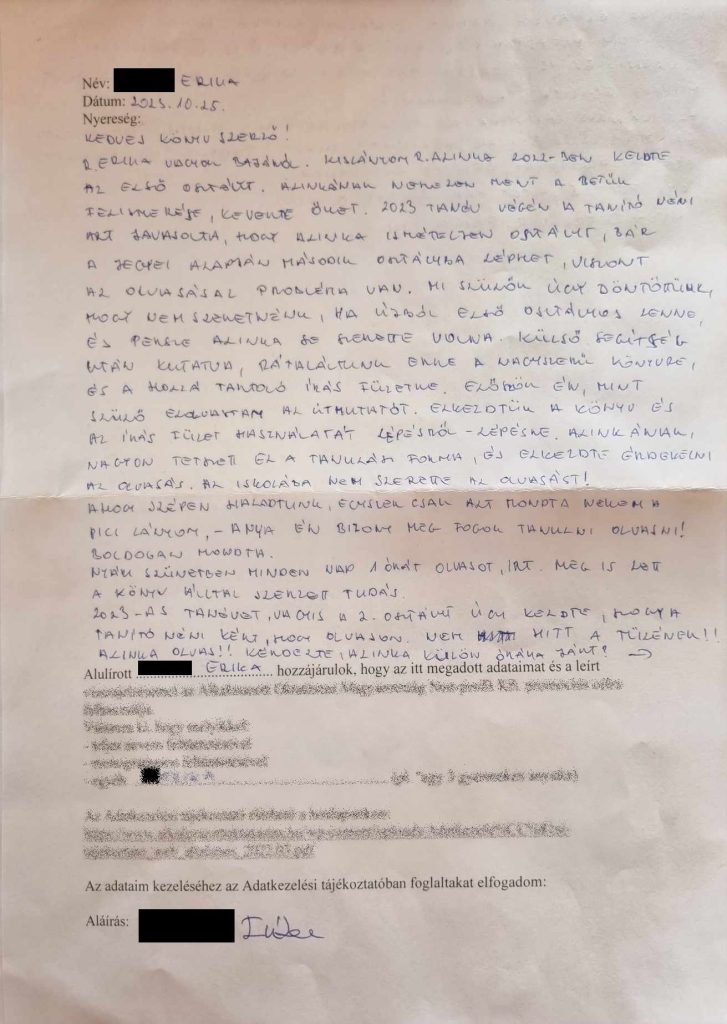 Név: ERIKA
Dátum: 2023.10.25.
Nyereség:
KEDVES KÖNYV SZERZŐ!
R.ERIKA VAGYOK BAJÁRÓL. KISLÁNYOM R.ALINKA 2022-BEN KEZDTE
AZ ELSŐ OSTÁJT. ALINKÁNAK NEHEZEN MENT A BETŰK
FELISMERÉSE, KEVERTE ŐKET. 2023 TANÉV VÉGÉN A TANÍTÓ NÉNI
AZT JAVASOLTA, HOGY ALINKA ISMÉTELJEN OSTÁJT, BÁR
A JEGYEI ALAPJÁN MÁSODIK OSTÁJBA LÉPHET, VISZONT
AZ OLVASÁSAL PROBLÉMA VAN. MI SZÜLŐK ÚGY DÖNTÖTTÜNK,
HOGY NEM SZERETNÉNK, HA ÚJBÓL ELSŐ OSTÁJOS LENNE,
ÉS PERSZE ALINKA SE SZERETTE VOLNA. KÜLSŐ SEGÍTSÉG
UTÁN KUTATVA, RÁTALÁLTUNK ERRE A NAGYSZERŰ KÖNYVRE,
ÉS A HOZZÁ TARTOZÓ ÍRÁS FÜZETRE. ELŐSZÖR ÉN, MINT
SZÜLŐ ELOLVASTAM AZ ÚTMUTATÓT. ELKEZDTÜK A KÖNYV ÉS
AZ ÍRÁS FÜZET HASZNÁLATÁT LÉPÉSRŐL-LÉPÉSRE. ALINKÁNAK,
NAGYON TETSZETT EZ A TANULÁSI FORMA, ÉS ELKEZDTE ÉRDEKELNI
AZ OLVASÁS. AZ ISKOLÁBA NEM SZERETTE AZ OLVASÁST!
AHOGY SZÉPEN HALADTUNK, EGYSZER CSAK AZT MONDTA NEKEM A
PICI LÁNYOM, - ANYA ÉN BIZONY MEG FOGOK TANULNI OLVASNI!
BOLDOGAN MONDTA.
NYÁRI SZÜNETBEN MINDEN NAP 1 ÓRÁT OLVASOT, ÍRT. MEG IS LETT
A KÖNYV ÁLLTAL SZERZETT TUDÁS.
2023-AS TANÉVET, VAGYIS A 2. OSTÁJT ÚGY KEZDTE, HOGY A
TANÍTÓ NÉNI KÉRT, HOGY OLVASON. NEM HITT A FÜLÉNEK!!
ALINKA OLVAS!! KÉRDEZTE, ALINKA KÜLÖN ÓRÁRA JÁRT? →
Alulírott ERIKA hozzájárulok, hogy az itt megadott adataimat és a leírt
Az adataim kezeléséhez az Adatkezelési tájékoztatóban foglaltakat elfogadom:
Aláírás: